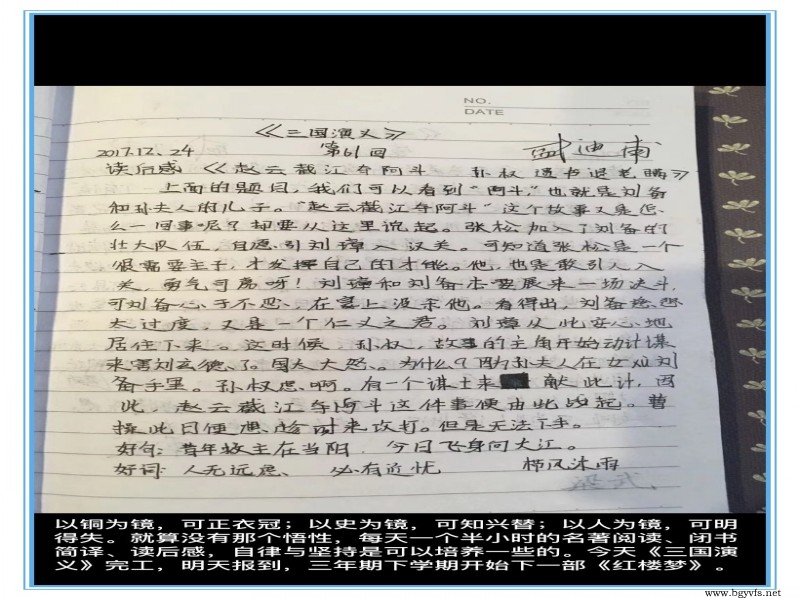 NO.
DATE
《三国演义》
2017.12.24 第61回 迪甫
读后感 《赵云截江夺阿斗 孙权遗书退老瞒》
上面的题目,我们可以看到"阿斗",也就是刘备
和孙夫人的儿子。"赵云截江夺阿斗"这个故事又是怎
么一回事呢?却要从这里说起。张松加入了刘备的
壮大队伍,自愿引刘璋入汉关。可知道张松是一个
很需要主子,才发挥自己的才能。他,也是敢引人入
关,勇气可嘉呀!刘璋和刘备本要展来一场决斗,
可刘备心于不忍,在宴上没杀他。看得出,刘备
太过度,又是一个仁义之君。刘璋从此安心地
居住下来。这时候,孙权,故事的主角开始动计谋
来害刘玄德、了。国太大怒。为什么?因为孙夫人在刘
备手里。孙权虑,啊。有一个谋士来献此计,因
此,赵云截江夺阿斗这件事便由此而起。曹
操此日便想,趁时来攻打。但是无法下手。
好句:昔年救主在当阳,今日飞身向大江。
好词:人无远虑、必有近忧 栉风沐雨
以铜为镜,可正衣冠;以史为镜,可知兴替;以人为镜,可明
得失。就算没有那个悟性,每天一个半小时的名著阅读、闭书
简译、读后感,自律与坚持是可以培养一些的。今天《三国演
义》完工,明天报到,三年期下学期开始下一部《红楼梦》。
www.bgyvfs.net